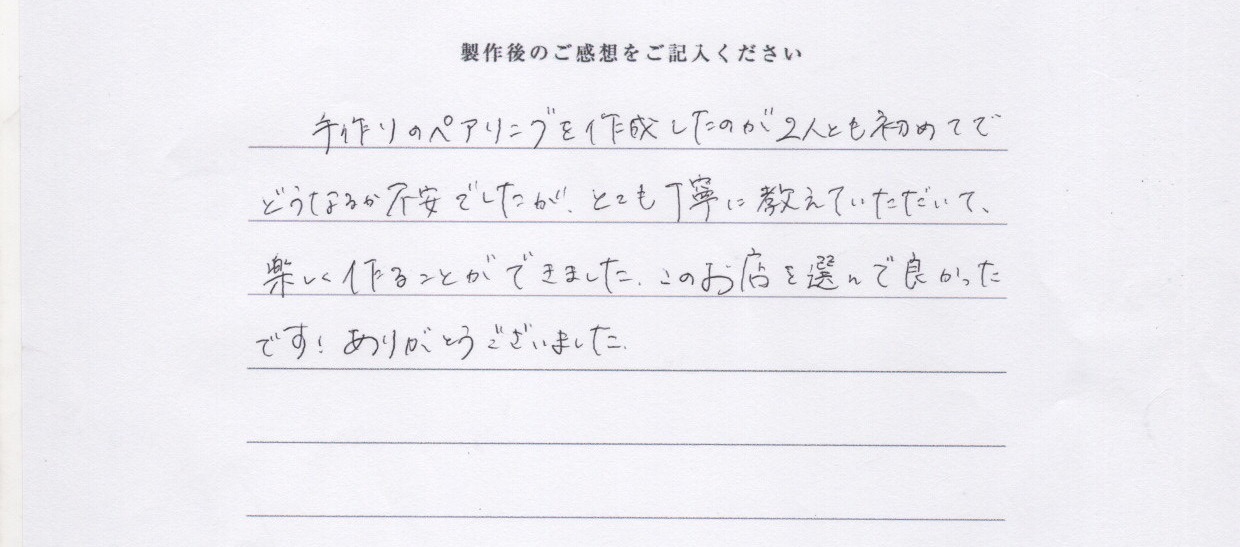 製作後のご感想をご記入ください
手作りのペアリングを作成したのが2人とも初めてで
どうなるか不安でしたが、とても丁寧に教えていただいて、
楽しく作ることができました。このお店を選んで良かった
です!ありがとうございました。